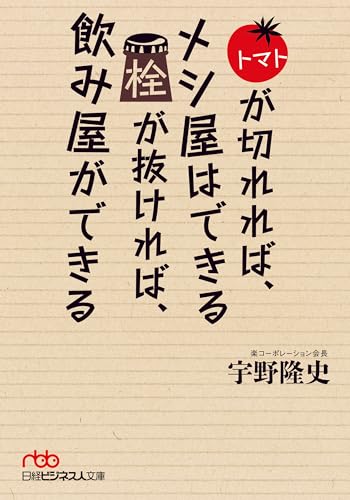 トマトが切れれば、
メシ屋はできる
栓が抜ければ、
飲み屋ができる
楽コーポレーション会長
宇野隆史
nbb
日経ビジネス人文庫